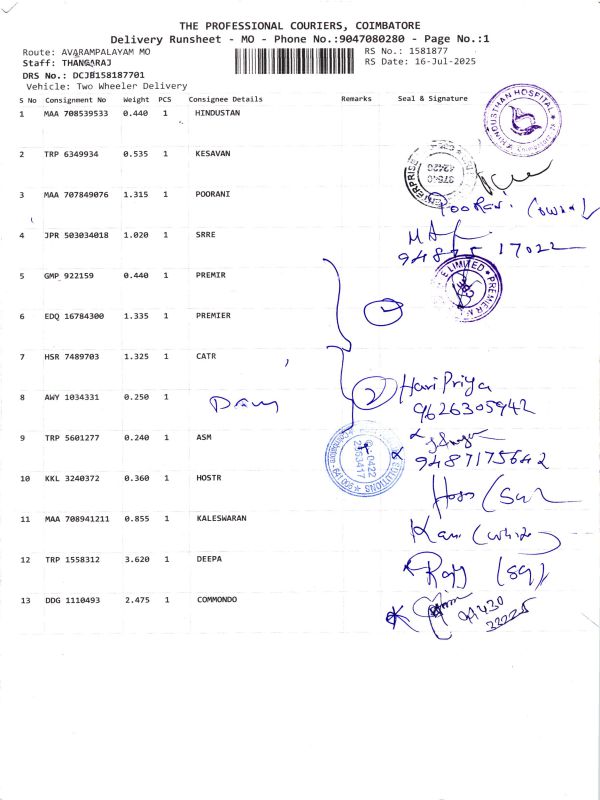 THE PROFESSIONAL COURIERS, COIMBATORE
Delivery Runsheet - MO - Phone No.:9047080280 - Page No.:1
Route: AVARAMPALAYAM MO
RS No.: 1581877
Staff: THANGARAJ
RS Date: 16-Jul-2025
DRS No.: DCJB158187701
Vehicle: Two Wheeler Delivery
S No Consignment No Weight PCS Consignee Details Remarks Seal & Signature
1 MAA 708539533 0.440 1 HINDUSTAN
HINDUSTHAN HOSPITAL
2 TRP 6349934 0.535 1 KESAVAN
3 MAA 707849076 1.315 1 POORANI
4 JPR 503034018 1.020 1 SRRE
94875 17022
5 GMP 922159 0.440 1 PREMIR
6 EDQ 16784300 1.335 1 PREMIER
7 HSR 7489703 1.325 1 CATR
2 Hari Priya
8 AWY 1034331 0.250 1
9626305942
9 TRP 5601277 0.240 1 ASM
9487175642
10 KKL 3240372 0.360 1 HOSTR
11 MAA 708941211 0.855 1 KALESWARAN
12 TRP 1558312 3.620 1 DEEPA
13 DDG 1110493 2.475 1 COMMONDO